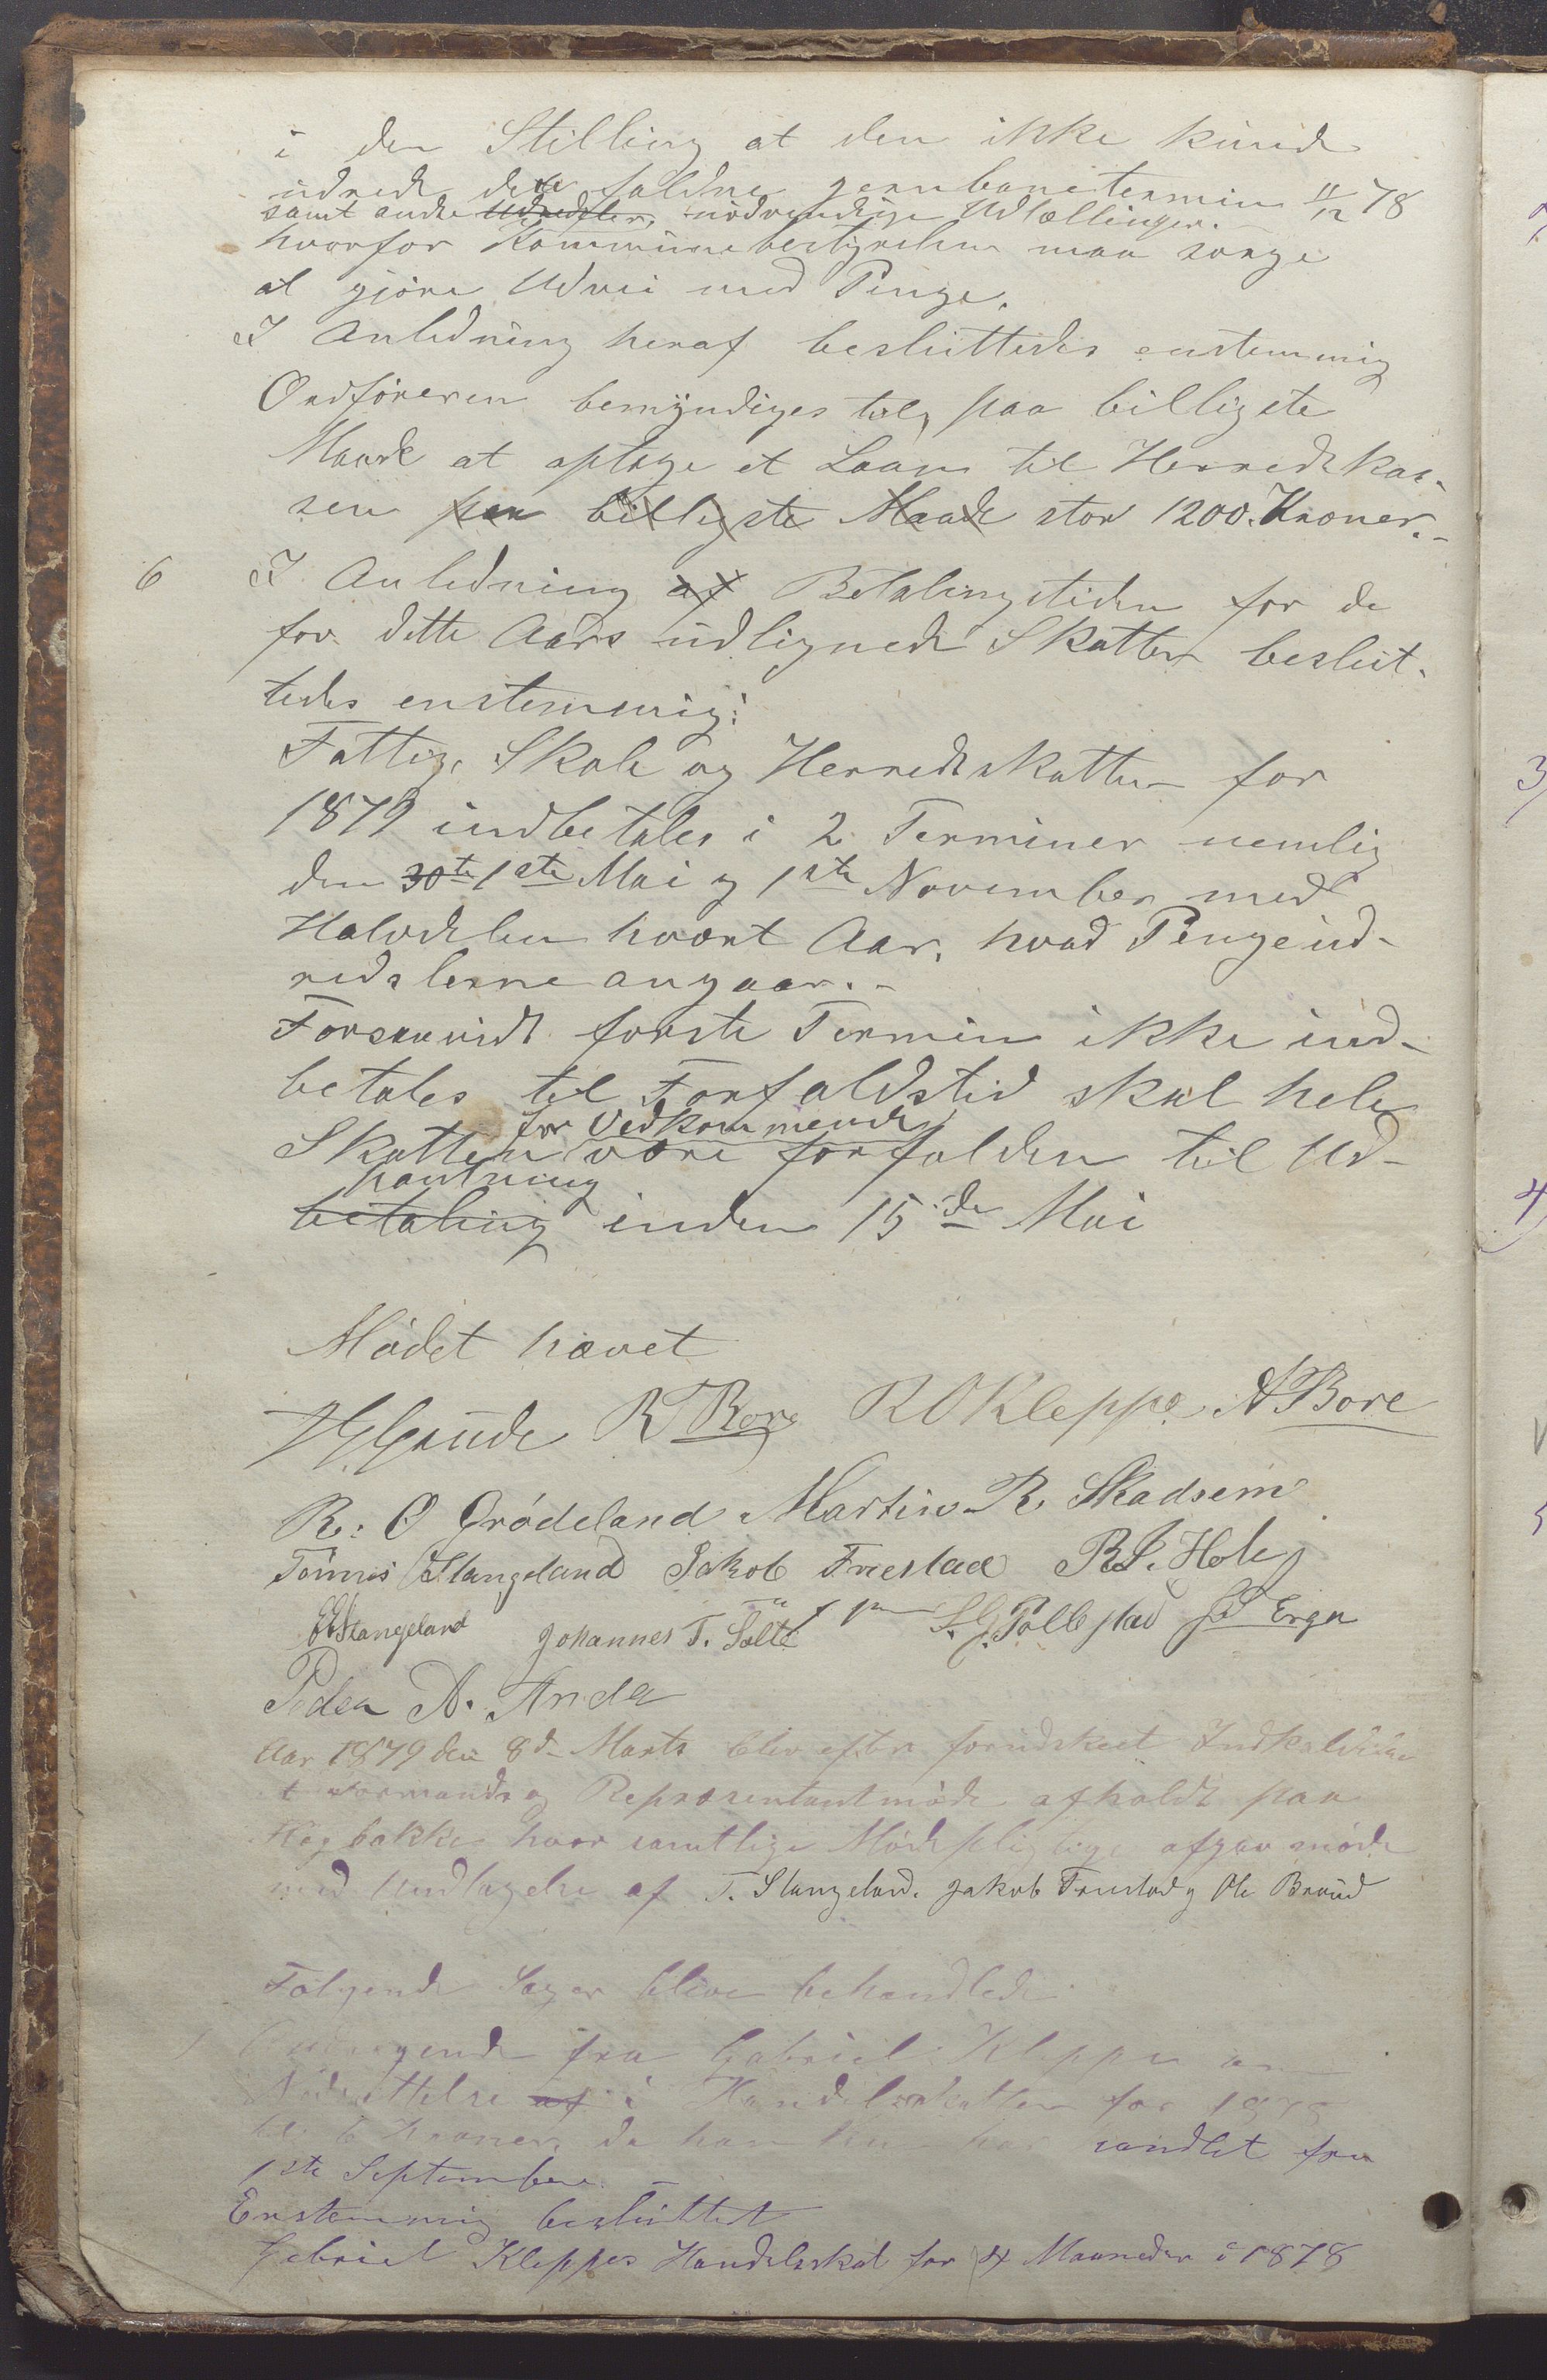 i den Stilling at den ikke kunde
udrede den faldne Jernbanetermin 11/12 78
samt andre Udredsler, nødvendige Udtællinger.
hvorfor Kommunebestyrelsen maa sørge
at gjøre Udvei med Penge.
I Anledning heraf besluttedes enstemmig
Ordføreren bemyndiges til, paa billigste
Maade at optage et Laan til Herredskas-
sen paa billigste Maade stor 1200. Kroner.-
6 I Anledning af Betalingstiden for de
for dette Aars udlignede Skatter beslut-
tedes enstemmig:
Fattig, Skole og Herredsskatten for
1879 indbetales i 2 Terminer nemlig
den 30te 1ste Mai og 1ste November med
Halvdelen hvert Aar, hvad Pengeud-
redslerne angaar.-
Forsaavidt første Termin ikke ind-
betales til Forfaldstid skal hele
for Vedkommende
Skatten være forfalden til Ud-
pantning
betaling inden 15de Mai
Mødet hævet
R T Bore R O Kleppe A Bore
R. O Grødeland Martin R. Skadsem
Tønnes Stangeland Jakob Friestad R. J. Hole
E Stangeland Johannes T. Sälte S. G. Pollestad Erga
Peder A. Anda
Aar 1879 den 8de Marts blev efter forudskeet Indkaldelse
Formands og Repræsentantmøde afholdt paa
Hagbakke hvor samtlige Mødepligtige afgav møde
med Undtagelse af T. Stangeland. Jakob Friestad og Ole Braud
Følgende Sager bleve behandlede
1 Andragende fra Gabriel Kleppe om
Nedsættelse af i Handelsskatten for 1878
til 6 Kroner, da han kun har handlet fra
1ste September.
Enstemmig besluttet
Gabriel Kleppes Handelsskat for 4 Maaneder i 1878
3/
4